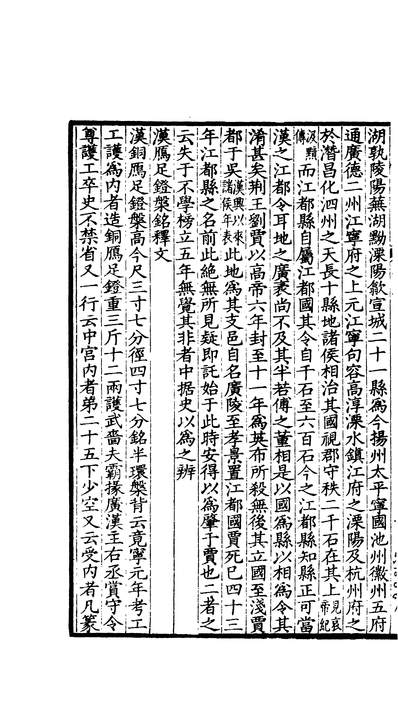 湖孰陵陽蕪湖黝溧陽歙宣城二十一縣爲今揚州太平寧國池州徽州五府
通廣德二州江寧府之上元江寧句容高淳溧水鎮江府之溧陽及杭州府之
於潛昌化泗州之天長十縣地諸侯相治其國視郡守秩二千石在其上見哀帝紀
汲黯傳而江都縣自屬江都國其令自千石至六百石今之江都縣知縣正可當
漢之江都令耳地之廣袤尚不及其半若傅之董相是以國爲縣以相爲令其
淆甚矣荆王劉賈以高帝六年封至十一年爲英布所殺無後其立國至淺賈
都于吳漢興以來諸侯年表此地爲其支邑自名廣陵至孝景置江都國賈死巳四十三
年江都縣之名前此絶無所見疑即託始于此時安得以爲肇于賈也二者之
云失于不學榜立五年無覺其非者中据史以爲之辨
漢鴈足鐙槃銘釋文
漢銅鴈足鐙槃高今尺三寸七分徑四寸七分銘半環槃背云竟寧元年考工
工護爲內者造銅鴈足鐙重三斤十二兩護武嗇夫霸掾廣漢主右丞賞守令
尊護工卒史不禁省又一行云中宫內者弟二十五下少空又云受內者凡篆